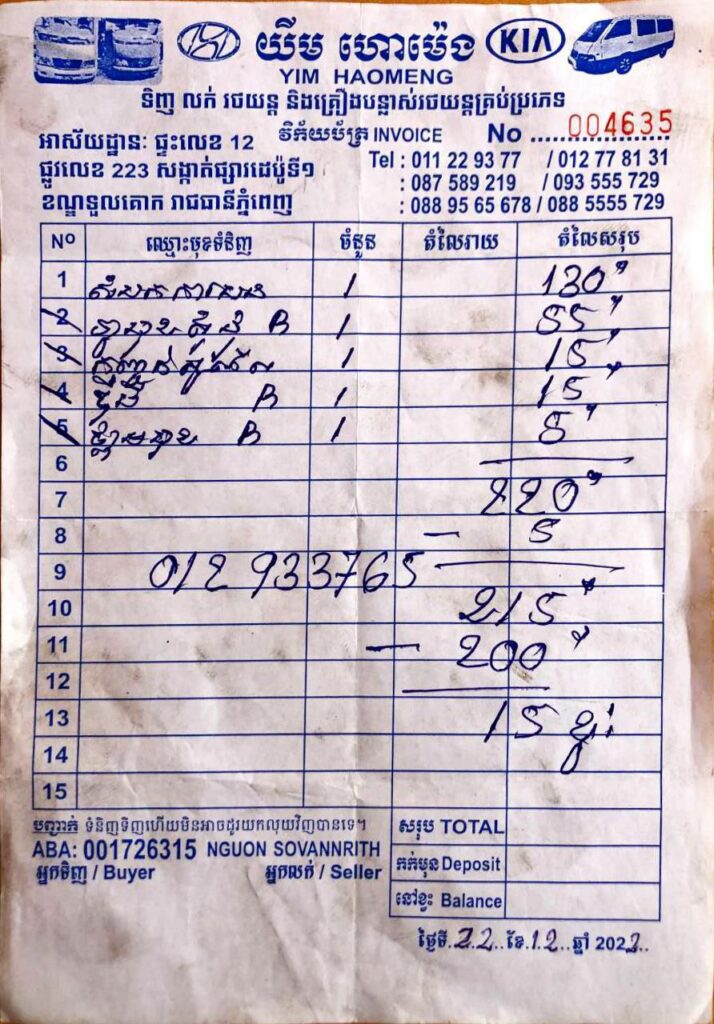 យឹម ហោម៉េង KIA
YIM HAOMENG
ទិញ លក់ រថយន្ត និងគ្រឿងបន្លាស់រថយន្តគ្រប់ប្រភេទ
អាស័យដ្ឋាន: ផ្ទះលេខ 12 វិក័យប័ត្រ INVOICE No 004635
ផ្លូវលេខ 223 សង្កាត់ផ្សារដេប៉ូទី១ Tel : 011 22 93 77 / 012 77 81 31
: 087 589 219 / 093 555 729
ខណ្ឌទួលគោក រាជធានីភ្នំពេញ : 088 95 65 678 / 088 5555 729
Nº ឈ្មោះមុខទំនិញ ចំនួន តំលៃរាយ តំលៃសរុប
1 1 130
2 B 1 55
3 1 15
4 B 1 15
5 B 1 5
6
7 220
8 - 5
9 012 933765
10 215
11 - 200
12
13 15 ខ្វះ
14
15
បញ្ជាក់ ទំនិញទិញហើយមិនអាចដូរយកលុយវិញបានទេ។ សរុប TOTAL
ABA: 001726315 NGUON SOVANNRITH
កក់មុន Deposit
អ្នកទិញ / Buyer អ្នកលក់ / Seller
នៅខ្វះ Balance
ថ្ងៃទី.22..ខែ.12..ឆ្នាំ 2022.